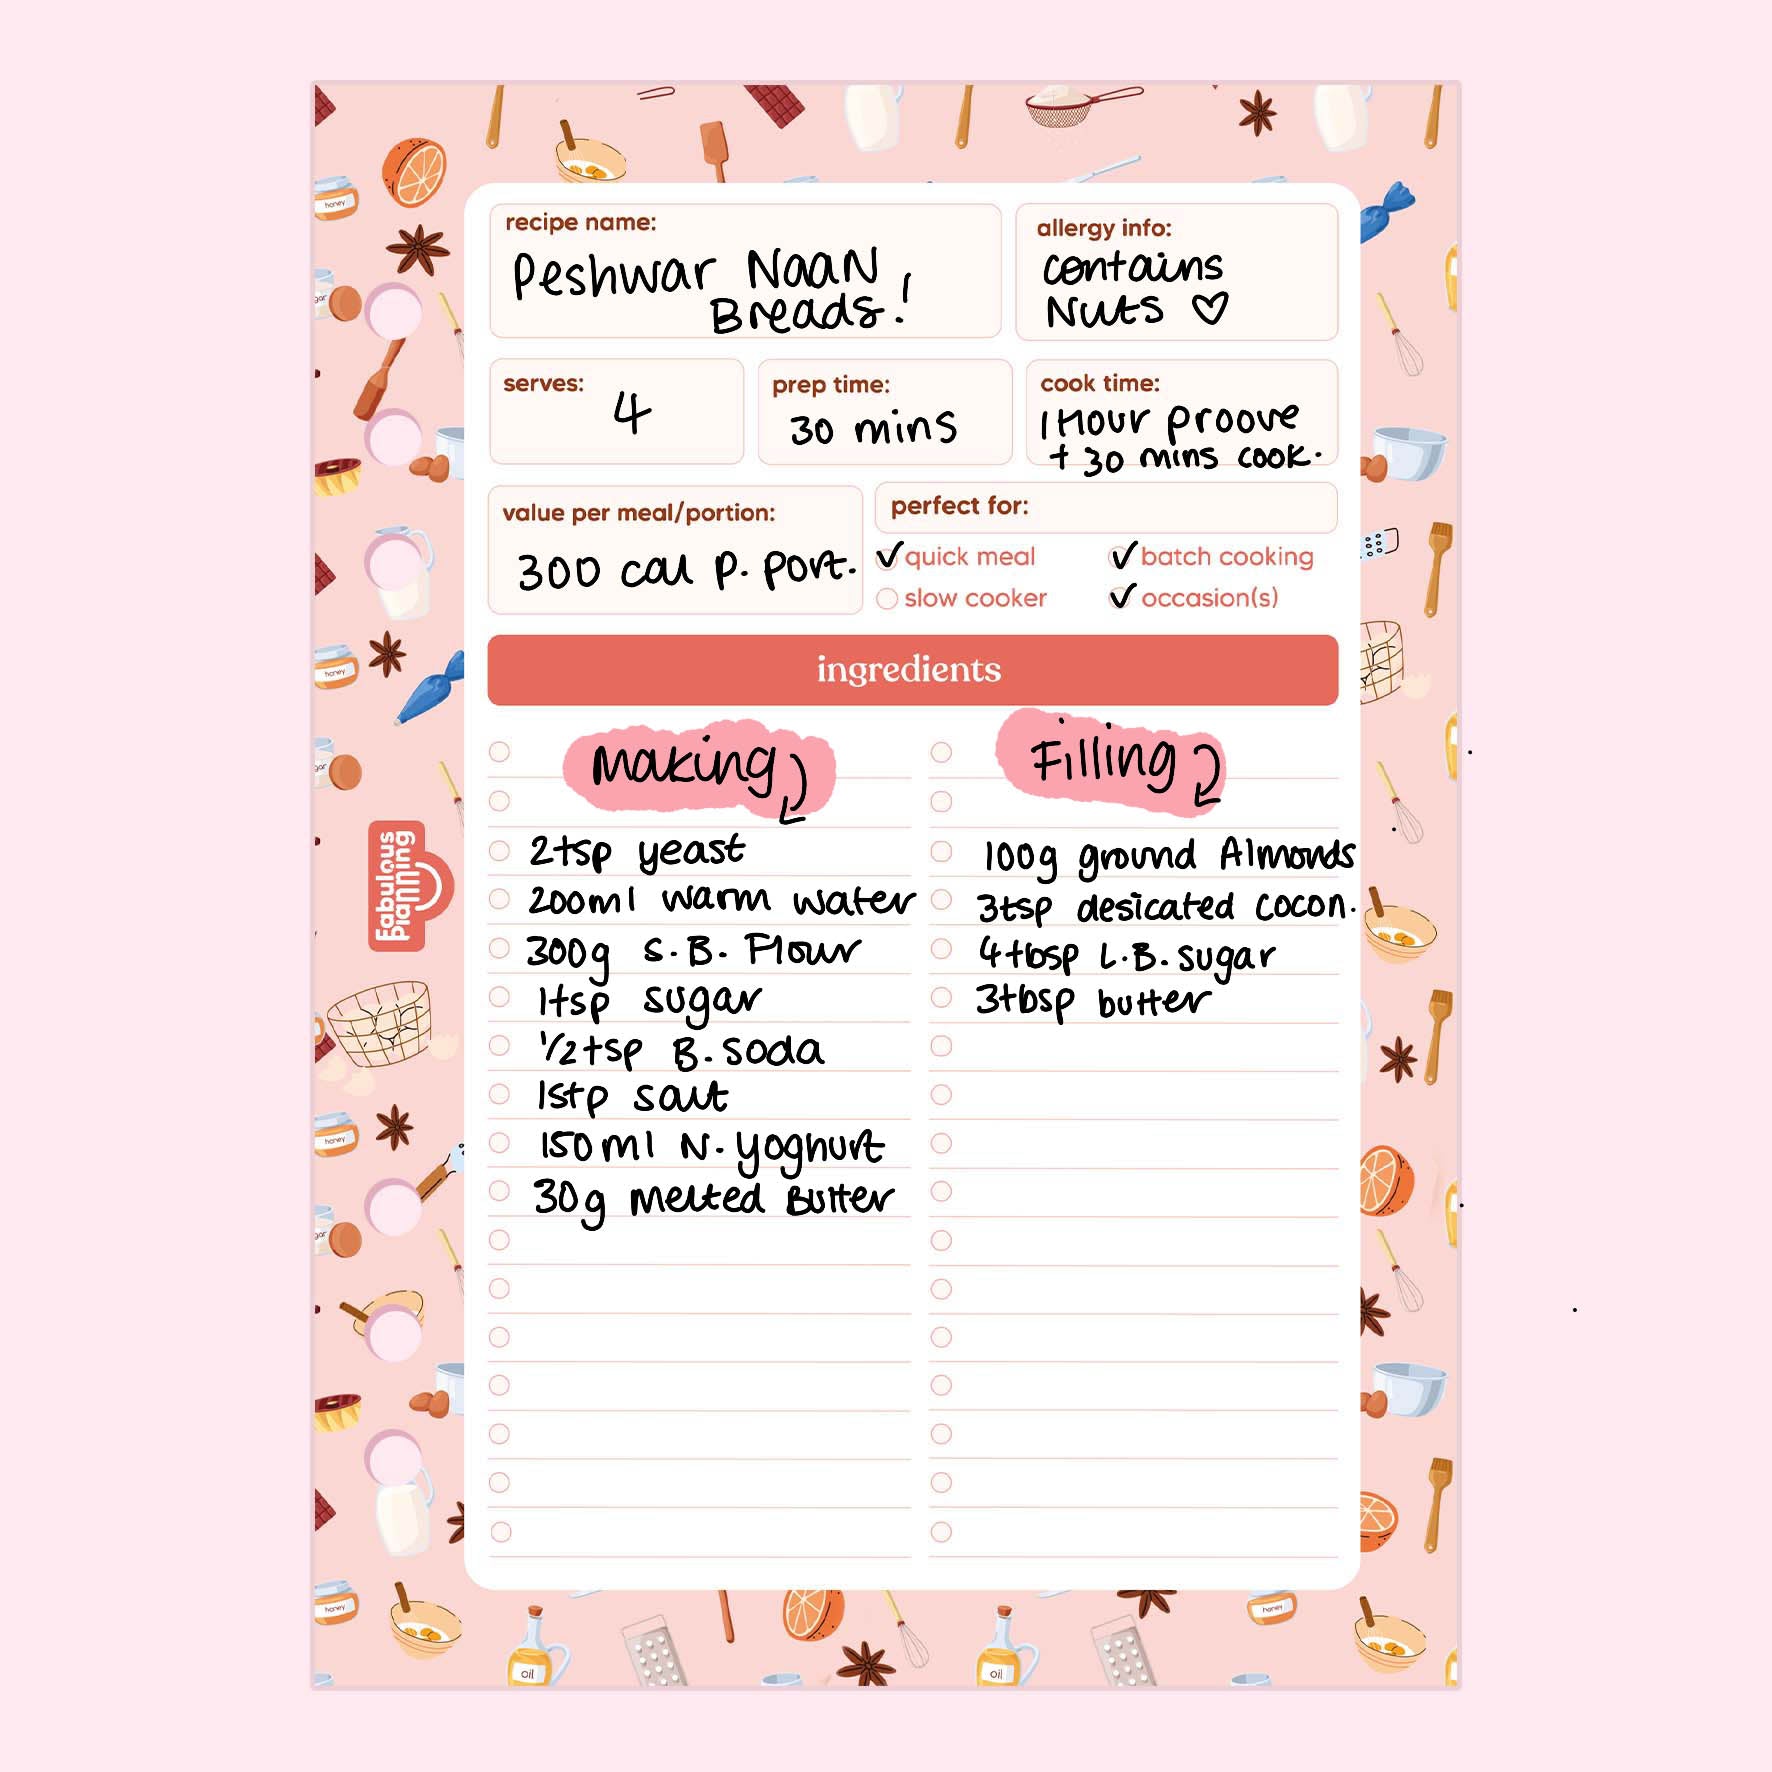 recipe name:
Peshwar Naan
Breads!
allergy info:
contains
Nuts ♡
serves:
4
prep time:
30 mins
cook time:
1 Hour proove
+ 30 mins cook.
value per meal/portion:
300 cal p. port.
perfect for:
✓ quick meal
✓ batch cooking
slow cooker
✓ occasion(s)
ingredients
Making
2tsp yeast
200ml warm water
300g S.B. Flour
1tsp sugar
1/2tsp B. soda
1stp salt
150ml N. yoghurt
30g melted Butter
Filling
100g ground Almonds
3tsp desicated cocon.
4tbsp L.B. sugar
3tbsp butter
Fabulous
Planning
honey
honey
honey
honey
honey
oil
oil
gar
gar
gar